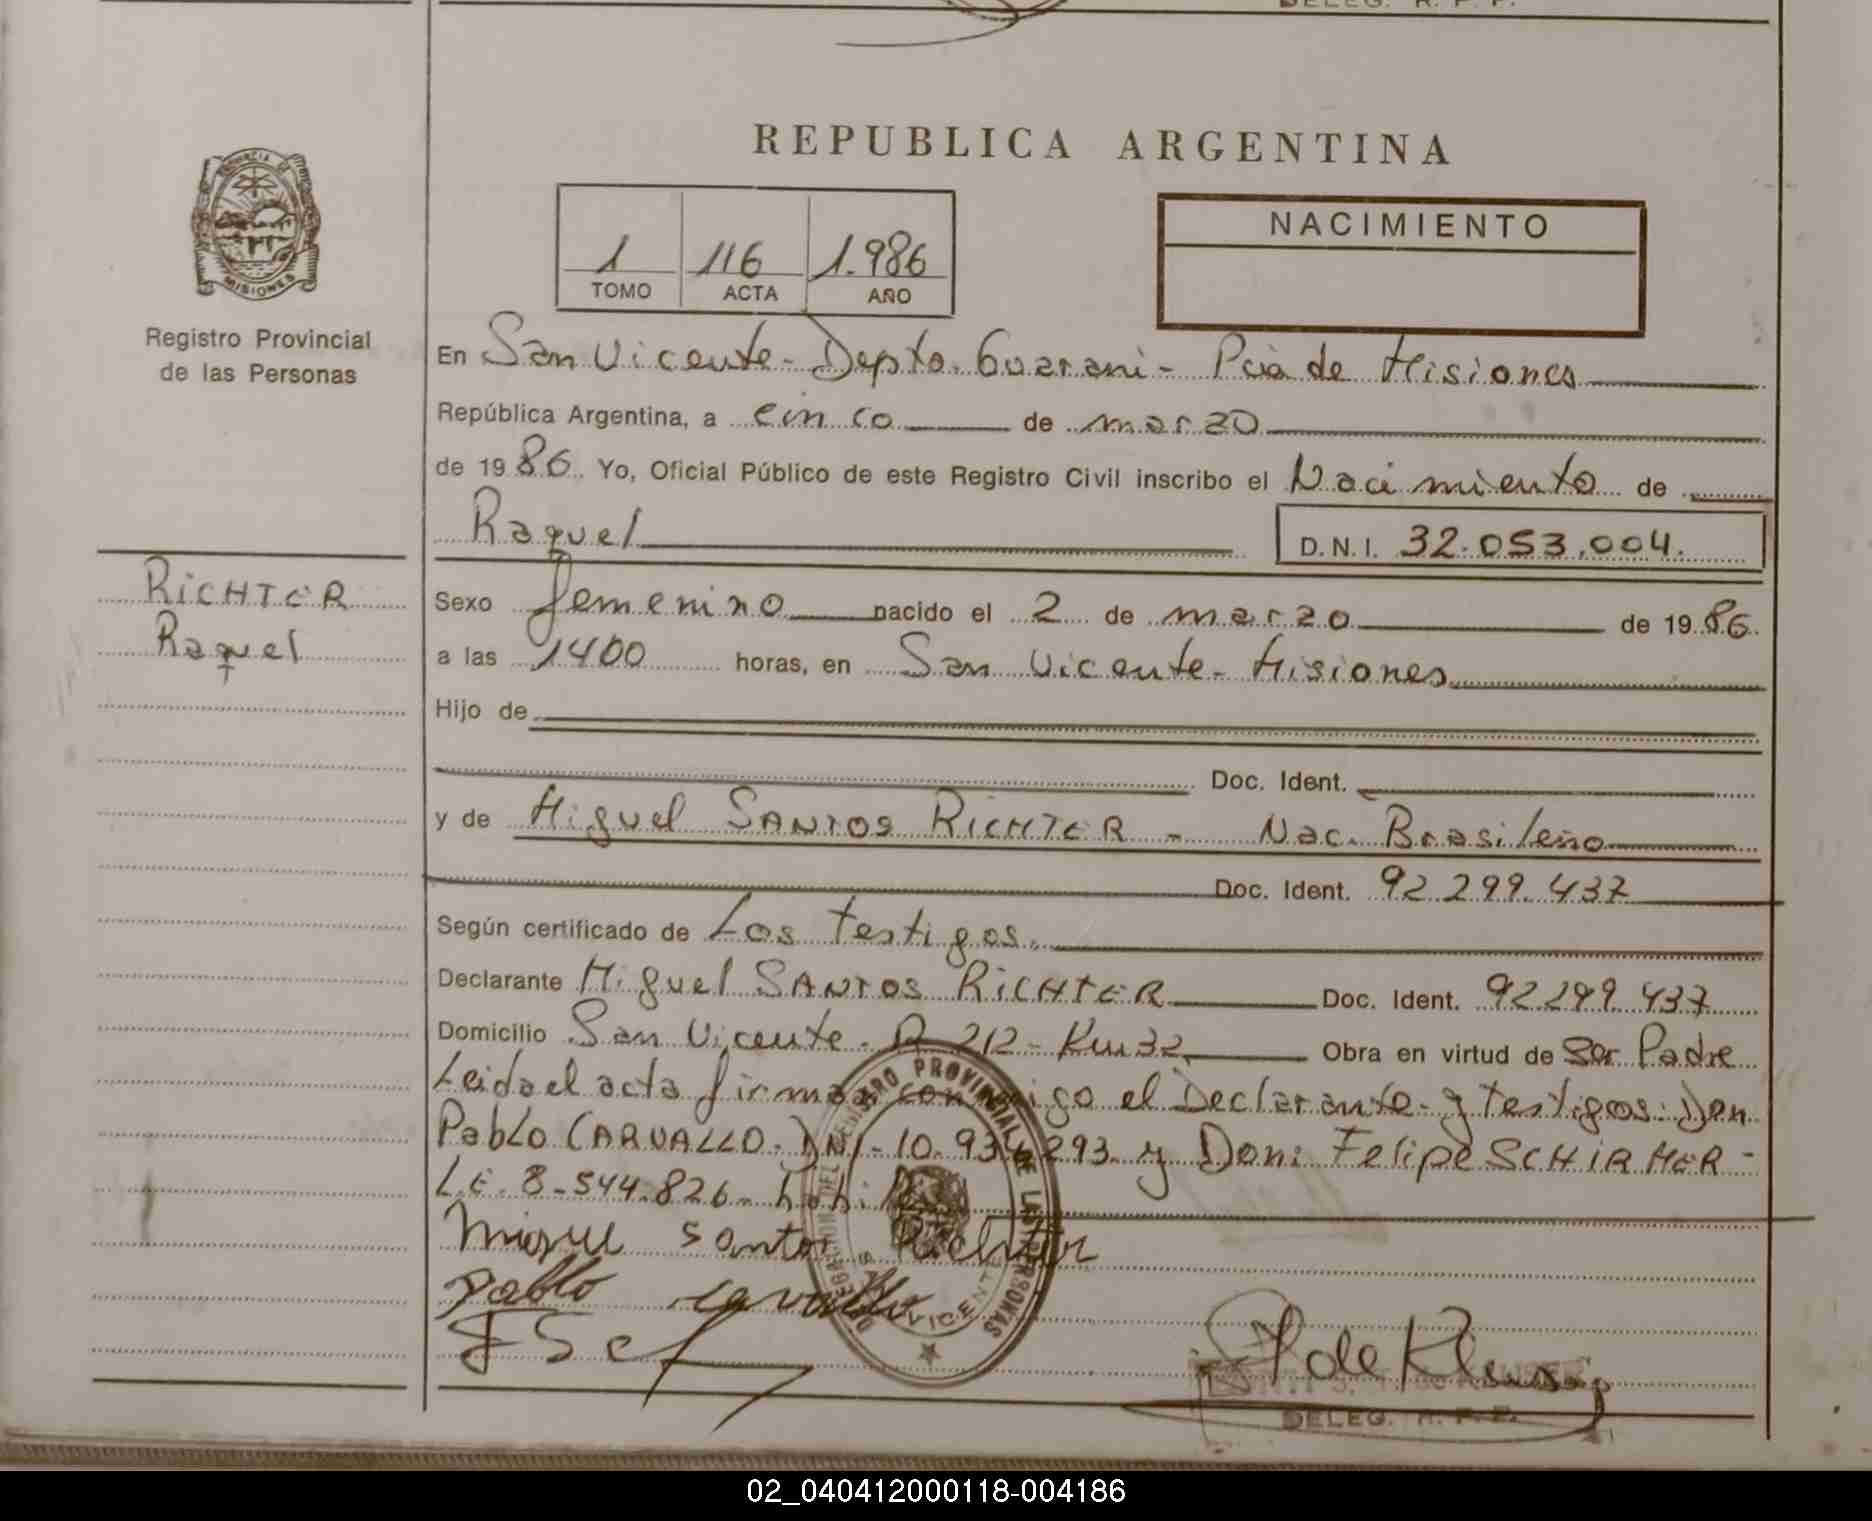 DELEG. R. P. P.
REPUBLICA ARGENTINA
PROVINCIA DE
MISIONES
Registro Provincial
de las Personas
NACIMIENTO
1 116 1.986
TOMO ACTA AÑO
En San Vicente - Depto. Guarani - Pcia de Misiones
República Argentina, a cinco de marzo
de 1986. Yo, Oficial Público de este Registro Civil inscribo el Nacimiento de
Raquel D.N.I. 32.053.004.
RiCHTER
Raquel
Sexo femenino nacido el 2 de marzo de 1986.
a las 1400 horas, en San Vicente - Misiones
Hijo de
Doc. Ident.
y de Miguel SANTOS RiCHTER - Nac. Brasileño
Doc. Ident. 92.299.437
Según certificado de Los Testigos.
Declarante Miguel SANTOS RiCHTER Doc. Ident. 92.299.437
Domicilio San Vicente - R 212 - Km 32 Obra en virtud de Ser Padre
Leida el acta firman conmigo el Declarante y testigos: Don
Pablo CARVALLO. DNI - 10.934.293 y Don: Felipe SCHiRMER -
L.E. 8-544.826 -
Miguel Santos Richter
pablo carvallo
DELEGACION DEL REGISTRO PROVINCIAL DE LAS PERSONAS
VICENTE
DELEG. R. P. P.
02_040412000118-004186